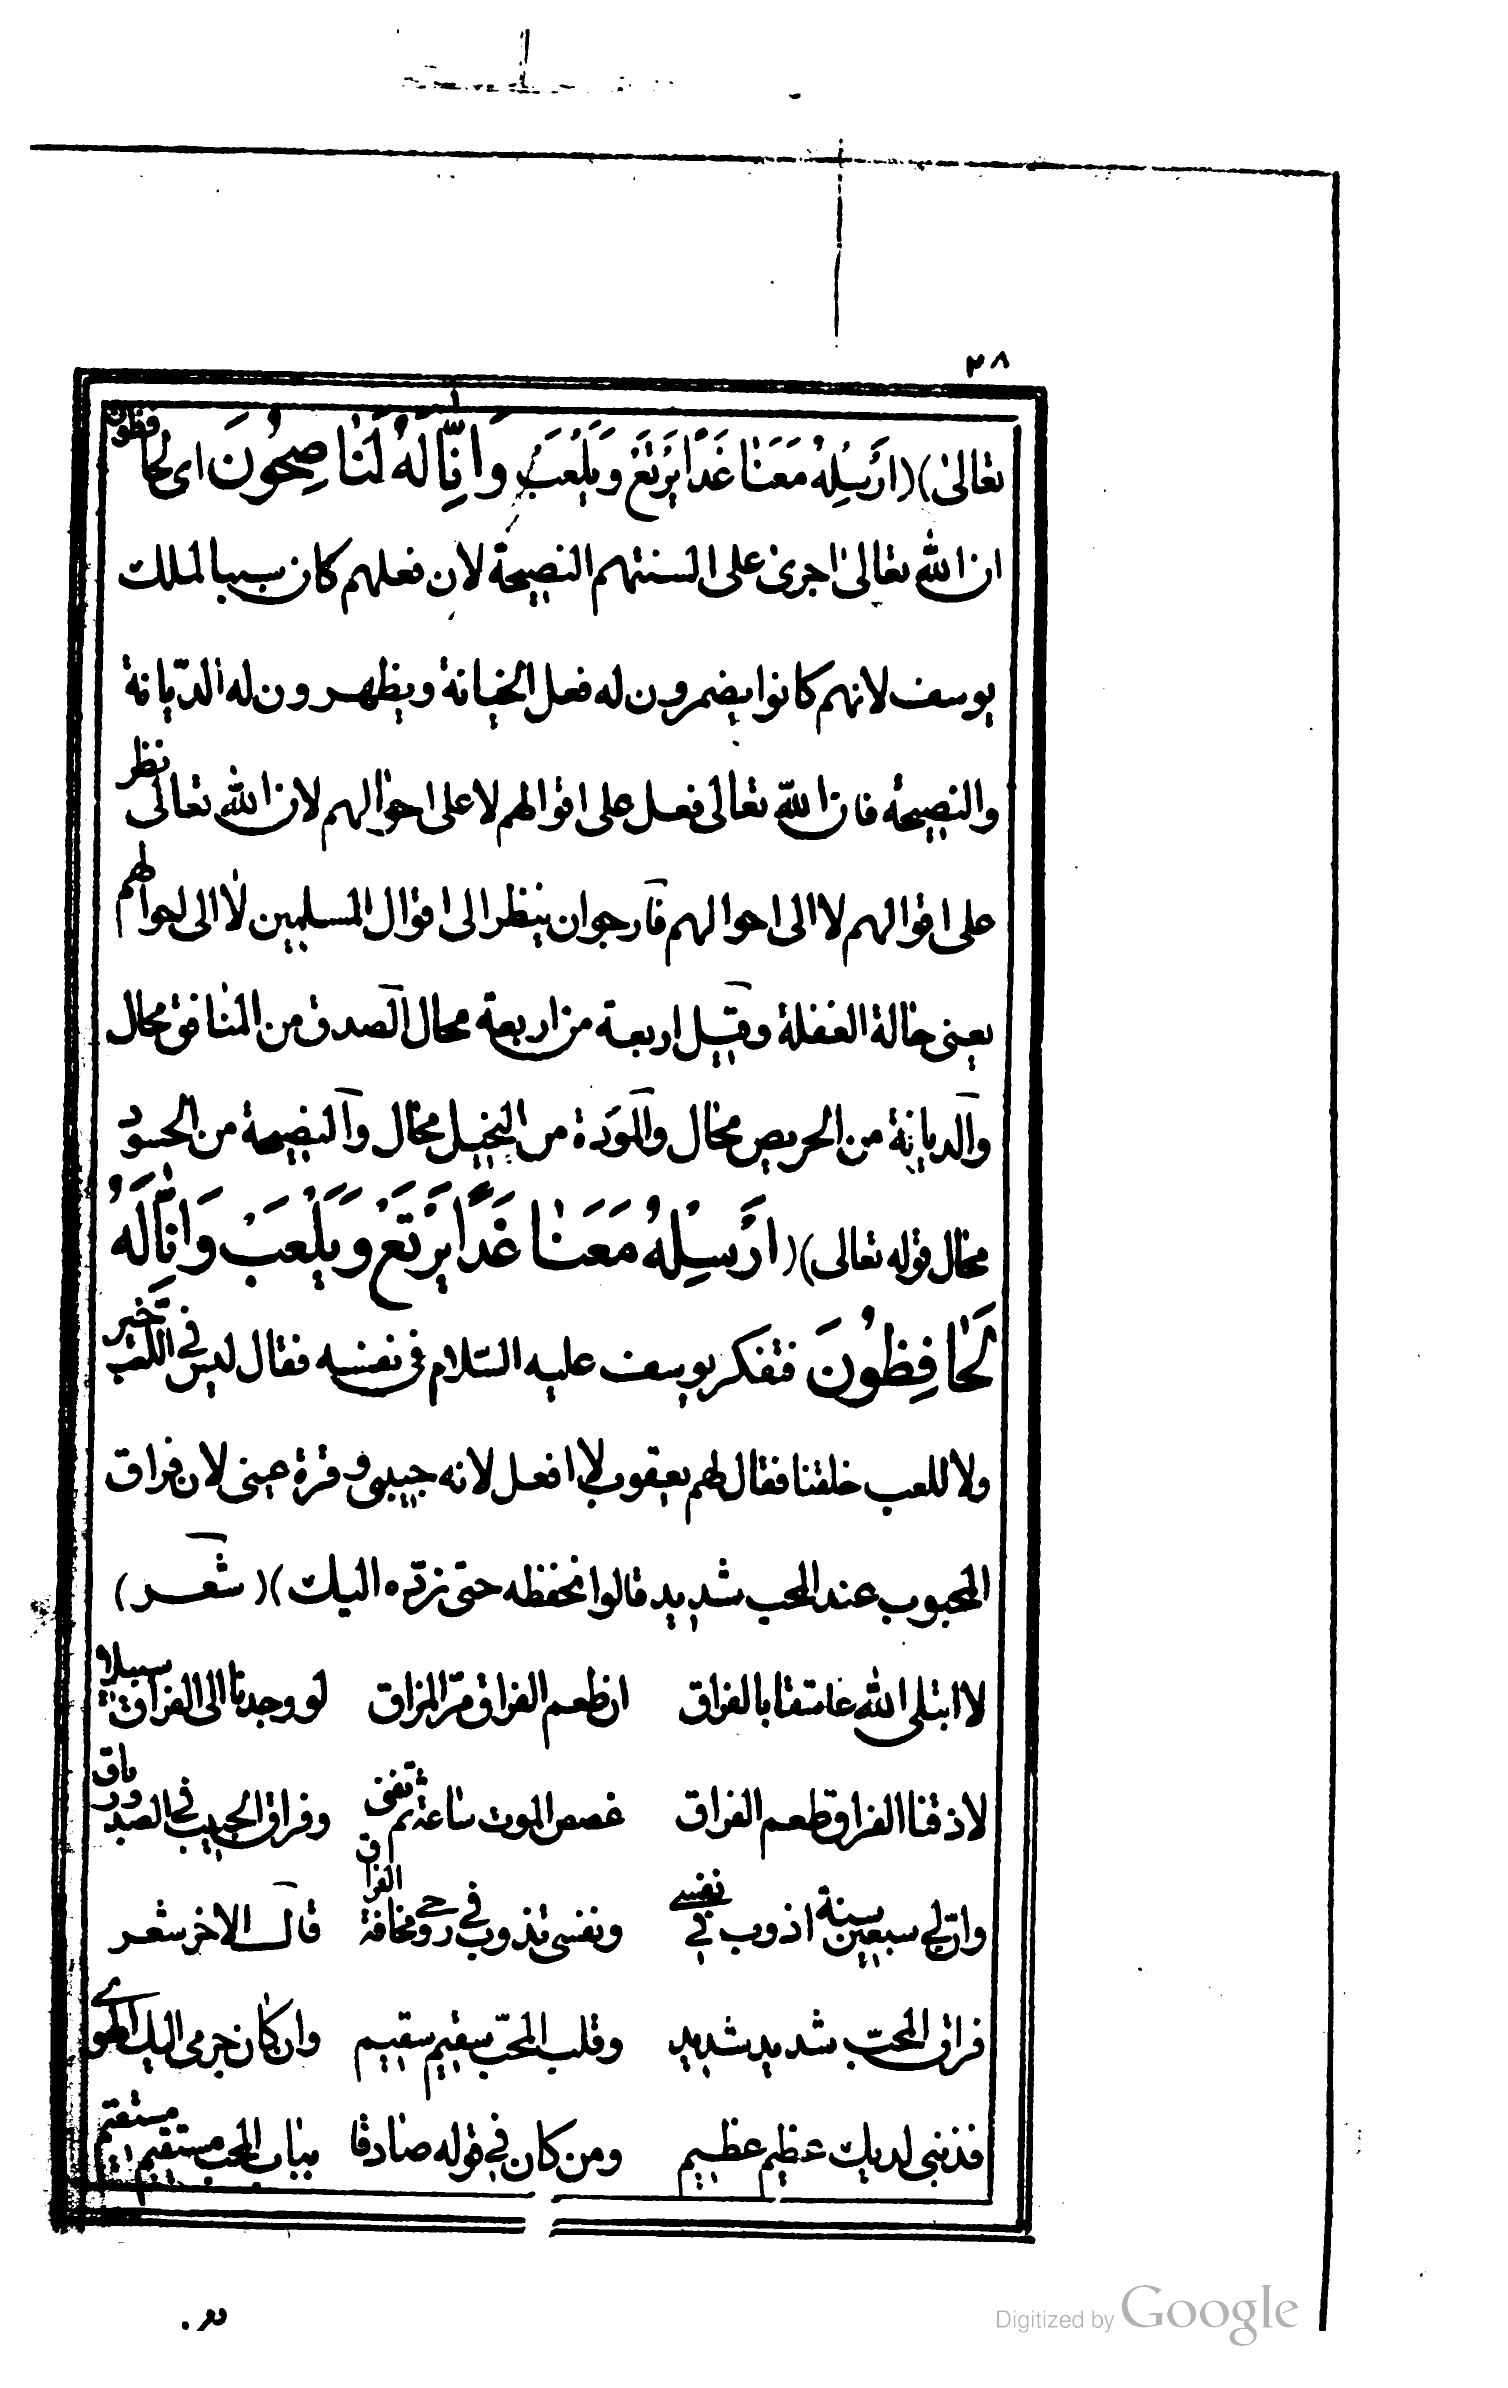 ٢٨
تعالى)(اَرْسِلْهُ مَعَنٰا غَدًا يَرْتَعْ وَيَلْعَبْ وَاِنَّا لَهُ لَنٰاصِحُونَ اى لحافظون
ان الله تعالى اجرى على السنتهم النصيحة لان فعلهم كان سببا لملك
يوسف لانهم كانوا يضمرون له فعل الخيانة ويظهرون له الديانة
والنصيحة فان الله تعالى فعل على اقوالهم لا على احوالهم لان الله تعالى نظر
على اقوالهم لا الى احوالهم فارجوان ينظر الى اقوال المسلمين لا الى احوالهم
يعنى حالة الغفلة وقيل اربعة من اربعة محال الصدق من المنافق محال
والديانة من الحريص محال والمودة من البخيل محال والنصيحة من الحسود
محال قوله تعالى)(اَرْسِلْهُ مَعَنٰا غَدًا يَرْتَعْ وَيَلْعَبْ وَاِنَّا لَهُ
لَحٰافِظُونَ فتفكر يوسف عليه السلام فى نفسه فقال ليس فى اللعب خير
ولا للعب خلقنا فقال لهم يعقوب لا افعل لانه حبيبى وقرة عينى لان فراق
المحبوب عند المحب شديد قالوا نحفظه حتى نرده اليك)(شعر)
لا ابتلى الله عاشقا بالفراق ان طعم الفراق مر المزاق لو وجدنا الى الفراق سبيلا
لاذقنا الفراق طعم الفراق غصص الموت ساعة ثم تفنى وفراق الحبيب فى الصدور باق
وان لى سبعين سنة اذوب فى نفسى ونفسى تذوب فى روحى مخافة الفراق قال الاخر شعر
فراق المحب شديد شديد وقلب المحب سقيم سقيم وان كان جرمى اليك الهوى
فذنبى لديك عظيم عظيم ومن كان فى قوله صادقا بباب المحب مستقيم مستقيم
Digitized by Google